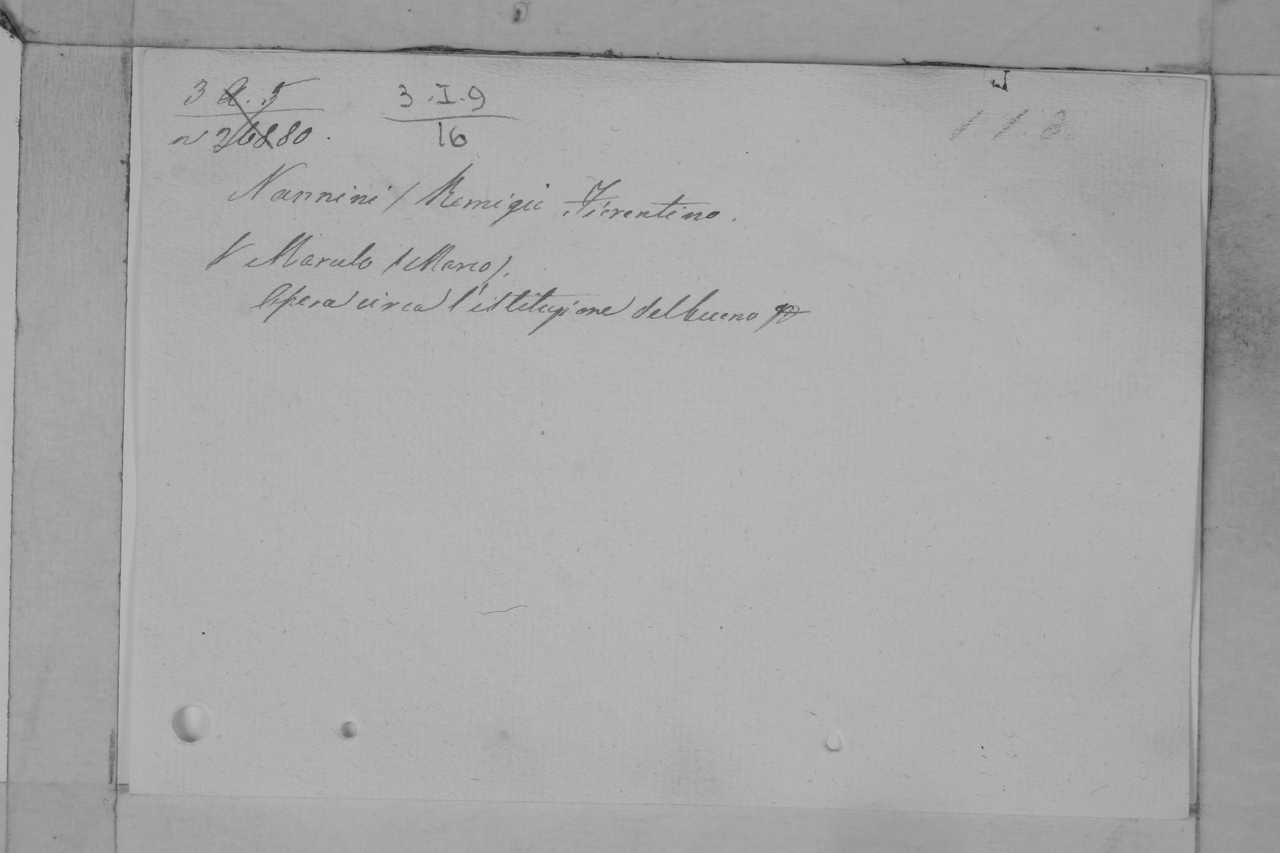 3 A. 5 3.I.9
n 26880. 16
1 1. 8.
Nannini / Remigii Fiorentino.
V Marulo (Marco).
Opera circa l'istituzione del buono